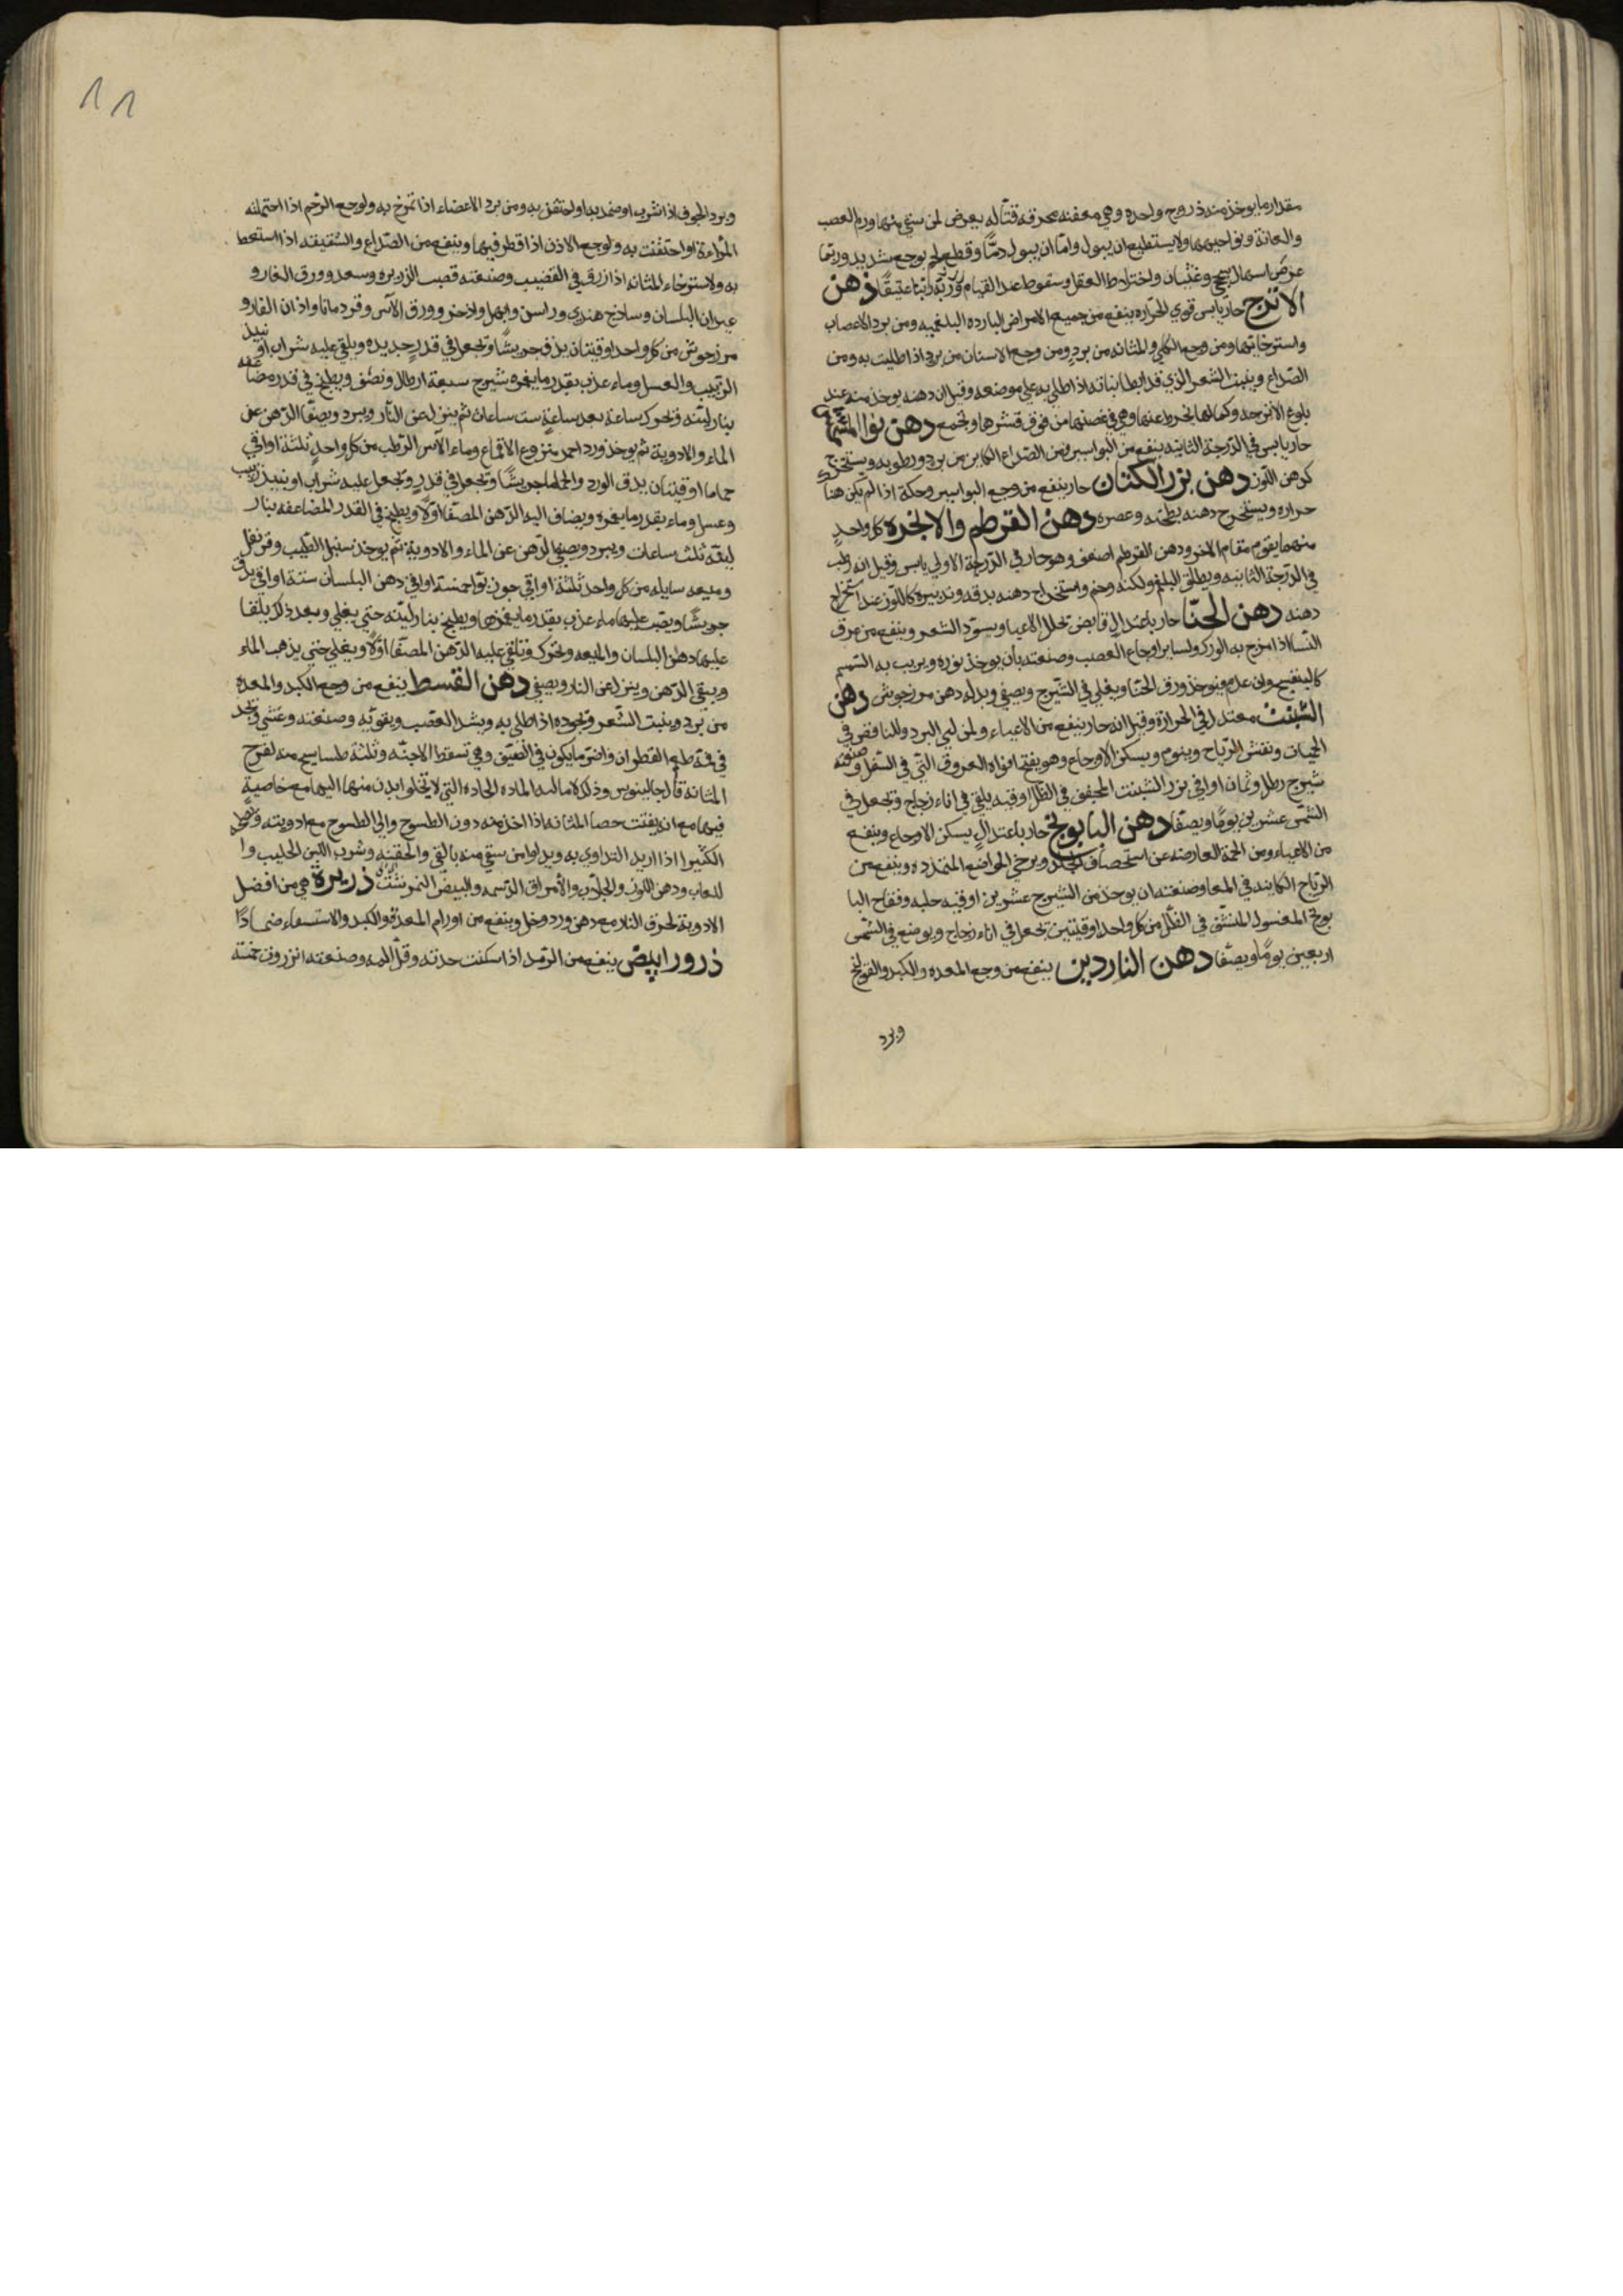 مقدار ما يوخذ منه ذروح واحده وهي معفنه محرقه قتاله يعرض لمن سقي منها ورم العصب
والعانة ونواحيهما ولا يستطيع ان يبول واما ان يبول دمًا وقطع لحم بوجع شديد وربما
عرض اسهال سحج وغثيان واختلاط العقل وسقوط عند القيام عتيقًا دهن
الاترج حار يابس قوي الحراره ينفع من جميع الامراض البارده البلغميه ومن برد الاعصاب
واسترخائها ومن وجع الكلي والمثانه من بردٍ ومن وجع الاسنان من برد اذا طليت به ومن
الصداع وينبت الشعر الذي قد ابطا نباته اذا طلي به علي موضعه وقيل ان دهنه يوخذ منه عند
بلوغ الاترجه وكمالها وهي في غصنها من فوق قشرها ويجمع دهن نوا المشمش
حار يابس في الدرجة الثانيه ينفع من البواسير ومن الصداع الكاين من برد ورطوبه ويستخرج
كدهن اللوز دهن بزر الكتان حار ينفع من وجع البواسير وحكة اذا لم يكن هناك
حراره ويستخرج دهنه بطحنه وعصره دهن القرطم والانجره كل واحدٍ
منهما يقوم مقام الاخر ودهن القرطم اضعف وهو حار في الدرجة الاولي يابس وقيل انه رطب
في الدرجة الثانيه ويطلق البلغم ولكنه وخم واستخراج دهنه بدقه وتدبيره كاللوز عند استخراج
دهنه دهن الحنا حار باعتدال قابض يحلل الاعيا ويسود الشعر وينفع من عرق
النسا اذا مرخ به الورك ولساير اوجاع العصب وصنعته بان يوخذ نوره ويربب به السمسم
كالبنفسج وان عدم فيوخذ ورق الحنا ويغلي في الشيرج ويصفي وبدله دهن مرزجوش دهن
الشبث معتدل في الحرارة وقيل انه حار ينفع من الاعياء ولمن لقي البرد وللنافض في
الحميات ويفش الرياح وينوم ويسكن الاوجاع وهو يفتح افواه العروق التي في السفل وصنعته
شيرج رطل وثمان اواقي بزر الشبث المجفف في الظل اوقيه يلقي في اناء زجاج ويجعل في
الشمس عشرين يومًا ويصفا دهن البابونج حار باعتدالٍ يسكن الاوجاع وينفع
من الاعياء ومن الحمة العارضه عن استحصاف الجلد ويرخي المواضع المتمدده وينفع من
الرياح الكاينه في المعا وصنعته ان يوخذ من الشيرج عشرين اوقيه حلبه وفقاح البا
بونج المغسول المنشف في الظل من كل واحد اوقيتين يجعل في اناء زجاج ويوضع في الشمس
اربعين يومًا ويصفا دهن الناردين ينفع من وجع المعده والكبد والقولنج
وبرد
11
وبرد الجوف اذا شرب او ضمد به او احتقن به ومن برد الاعضاء اذا تمرخ به ولوجع الرحم اذا احتملته
المراءة او احتقنت به ولوجع الاذن اذا قطر فيها وينفع من الصداع والشقيقه اذا استعط
به ولاسترخاء المثانه اذا زرق في القضيب وصنعته قصب الزريره وسعد وورق الغار و
عيدان البلسان وساذج هندي وراسن وابهل واذخر وورق الآس وقردمانا واذان الفار و
مرزجوش من كل واحد اوقيتان يدق جريشًا ويجعل في قدر جديده ويلقي عليه شراب او نبيذ
الزبيب والعسل وماء عذب بقدر ما يغمره شيرج سبعة ارطال ونصف ويطبخ في قدر مضاعفه
بنار لينه ويحرك ساعة بعد ساعةٍ ست ساعات ثم ينزل عن النار ويبرد ويصفا الدهن عن
الماء والادوية ثم يوخذ ورد احمر منزوع الاقماع وماء الآس الرطب من كل واحدٍ ثلثة اواقي
حماما اوقيتان يدق الورد والحماما جريشًا ويجعل في قدرٍ ويجعل عليه شراب او نبيذ زبيب
وعسل وماء بقدر ما يغمره ويضاف اليه الدهن المصفا اولًا ويطبخ في القدر المضاعفه بنار
لينة ثلث ساعات ويبرد ويصفي الدهن عن الماء والادوية ثم يوخذ سنبل الطيب وقرنفل
وميعه سايله من كل واحد ثلثة اواقي جوز بوا خمسة اواقي دهن البلسان ستة اواقي يدق
جريشًا ويصب عليها ماء عذب بقدر ما يغمرها ويطبخ بنار لينه حتي يغلي وبعد ذلك يلقا
عليها دهن البلسان والميعه ويحرك ويلقي عليه الدهن المصفا اولًا ويغلي حتي يذهب الماء
ويبقي الدهن وينزل عن النار ويصفي دهن القسط ينفع من وجع الكبد والمعده
من برد وينبت الشعر ويجوده اذا طلي به ويشد العصب ويقويه وصنعته وغثي ويجد
في فمه طعم القطران واضر ما يكون في الضيق وهي تسقط الاجنه وثلثة طساسيج منه تقرح
المثانه قال جالينوس وذلك لامالته الماده الحاده التي لا يخلوا بدن منها اليها مع خاصيةٍ
فيها مع انه يفتت حصا المثانه اذا اخذ منه دون الطسوج والي الطسوج مع ادويته
الكثيرا اذا اريد التداوي به ويداوا من سقي منه بالقي والحقنه وشرب اللبن الحليب وا
للعاب ودهن اللوز والجلاب والامراق الدسمه والبيض النمرشت ذريرة هي من افضل
الادوية لحرق النار مع دهن ورد وخل وينفع من اورام المعدة والكبد والاستسقاء ضمادًا
ذرور ابيض ينفع من الرمد اذا سكنت حدته وقل المه وصنعته انزروت خمسة